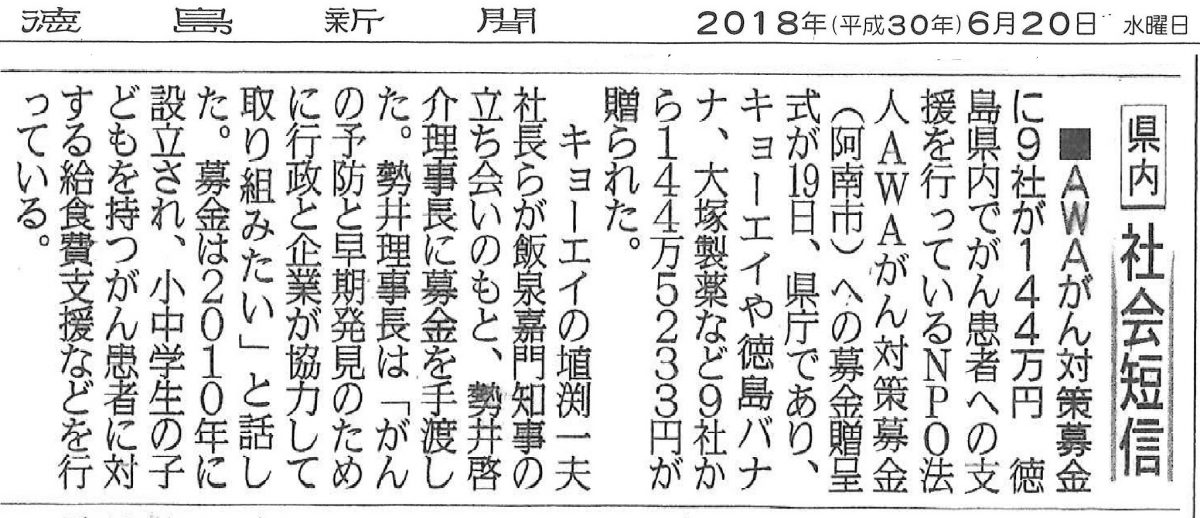 徳島新聞
2018年(平成30年)6月20日 水曜日
県内 社会短信
■AWAがん対策募金
に9社が144万円 徳
島県内でがん患者への支
援を行っているNPO法
人AWAがん対策募金
（阿南市）への募金贈呈
式が19日、県庁であり、
キョーエイや徳島バナ
ナ、大塚製薬など9社か
ら144万5233円が
贈られた。
キョーエイの埴渕一夫
社長らが飯泉嘉門知事の
立ち会いのもと、勢井啓
介理事長に募金を手渡し
た。勢井理事長は「がん
の予防と早期発見のため
に行政と企業が協力して
取り組みたい」と話し
た。募金は2010年に
設立され、小中学生の子
どもを持つがん患者に対
する給食費支援などを行
っている。